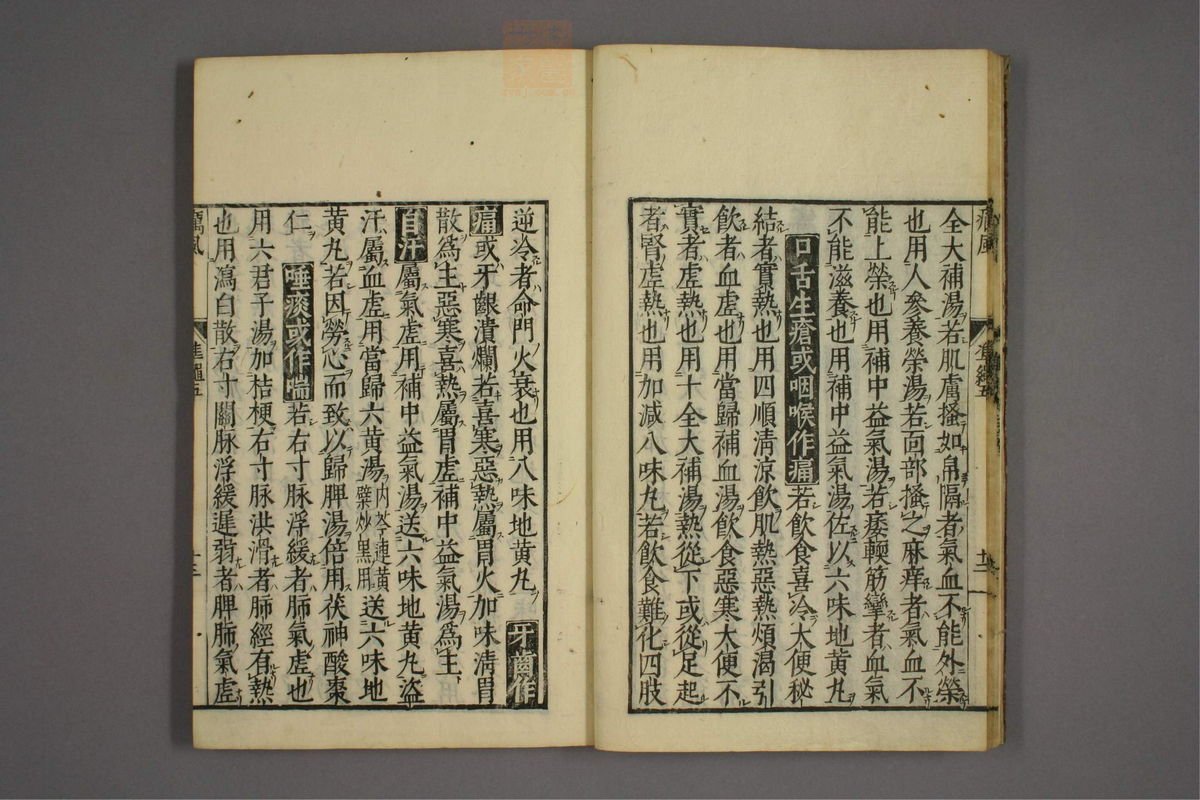 癘風
全大補湯若肌膚搔如帛隔者氣血不能外榮
也用人參養榮湯若面部搔之麻痒者氣血不
能上榮也用補中益氣湯若痿輭筋攣者血氣
不能滋養也用補中益氣湯佐以六味地黃丸
口舌生瘡或咽喉作痛若飲食喜冷大便秘
結者實熱也用四順清涼飲肌熱惡熱煩渴引
飲者血虛也用當歸補血湯飲食惡寒大便不
實者虛熱也用十全大補湯熱從下或從足起
者腎虛熱也用加減八味丸若飲食難化四肢
逆冷者命門火衰也用八味地黃丸 牙齒作
痛或牙齦潰爛若喜寒惡熱屬胃火加味清胃
散為主惡寒喜熱屬胃虛補中益氣湯為主
自汗屬氣虛用補中益氣湯送六味地黃丸盜
汗屬血虛用當歸六黃湯內芩連黃蘗炒黑用送六味地
黃丸若因勞心而致以歸脾湯倍用茯神酸棗
仁 唾痰或作喘若右寸脉浮緩者肺氣虛也
用六君子湯加桔梗右寸脉洪滑者肺經有熱
也用瀉白散右寸關脉浮緩遲弱者脾肺氣虛
癘風
十三